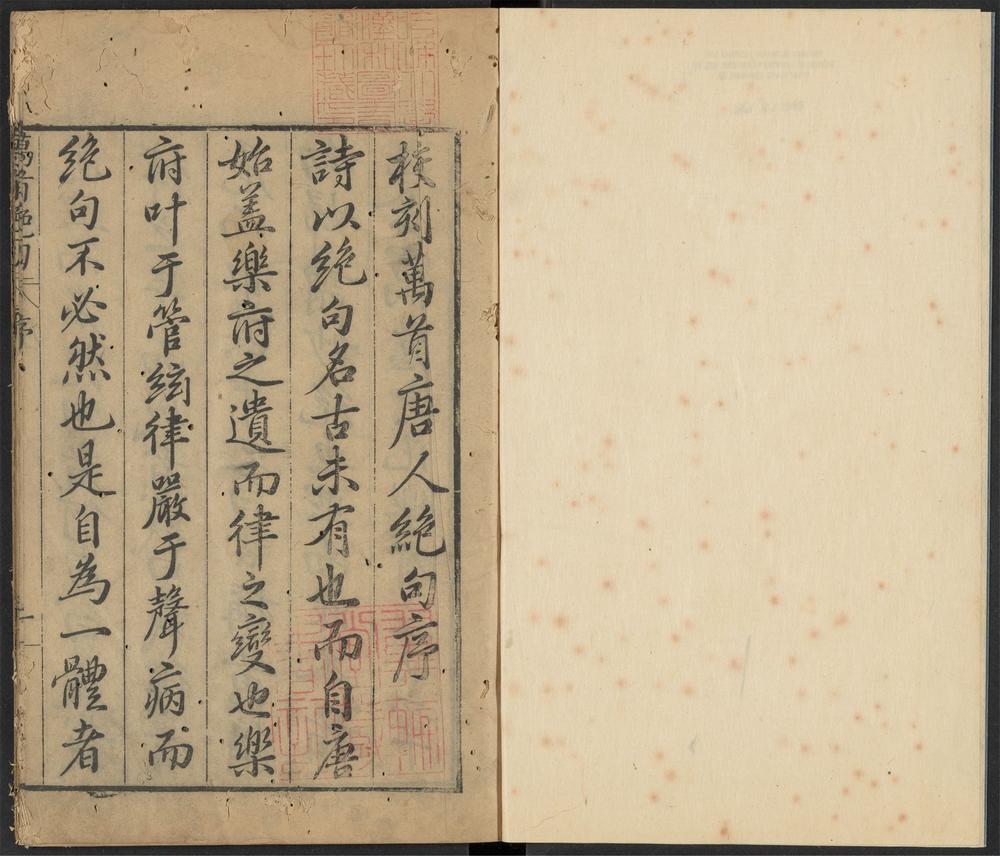 校刻萬首唐人絕句序
詩以絕句名古未有也而自唐
始蓋樂府之遺而律之變也樂
府叶于管絃律嚴于聲病而
絕句不必然也是自為一體者
萬首絕句 序